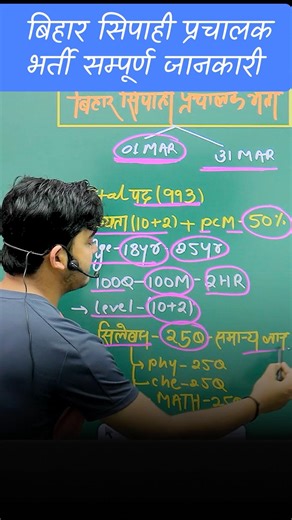 बिहार सिपाही प्रचालक
भर्ती सम्पूर्ण जानकारी
बिहार सिपाही प्रचालक
01 MAR
31 MAR
पद (993)
(10+2) + PCM - 50%
18yr 25yr
100Q - 100M - 2HR
→ level - (10+2)
सिलेबस - 25Q - सामान्य
phy - 25Q
che - 25Q
MATH - 25Q